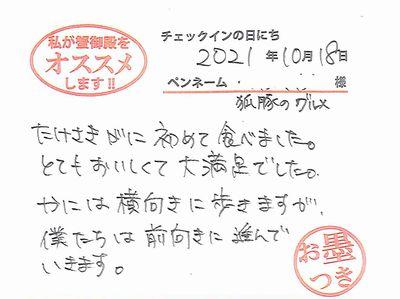 私が蟹御殿を
オススメ
します!!
チェックインの日にち
2021年10月18日
ペンネーム 様
狐豚のグルメ
たけさきがに初めて食べました。
とてもおいしくて大満足でした。
かには横向きに歩きますが、
僕たちは前向きに進んで
いきます。
お墨
つき